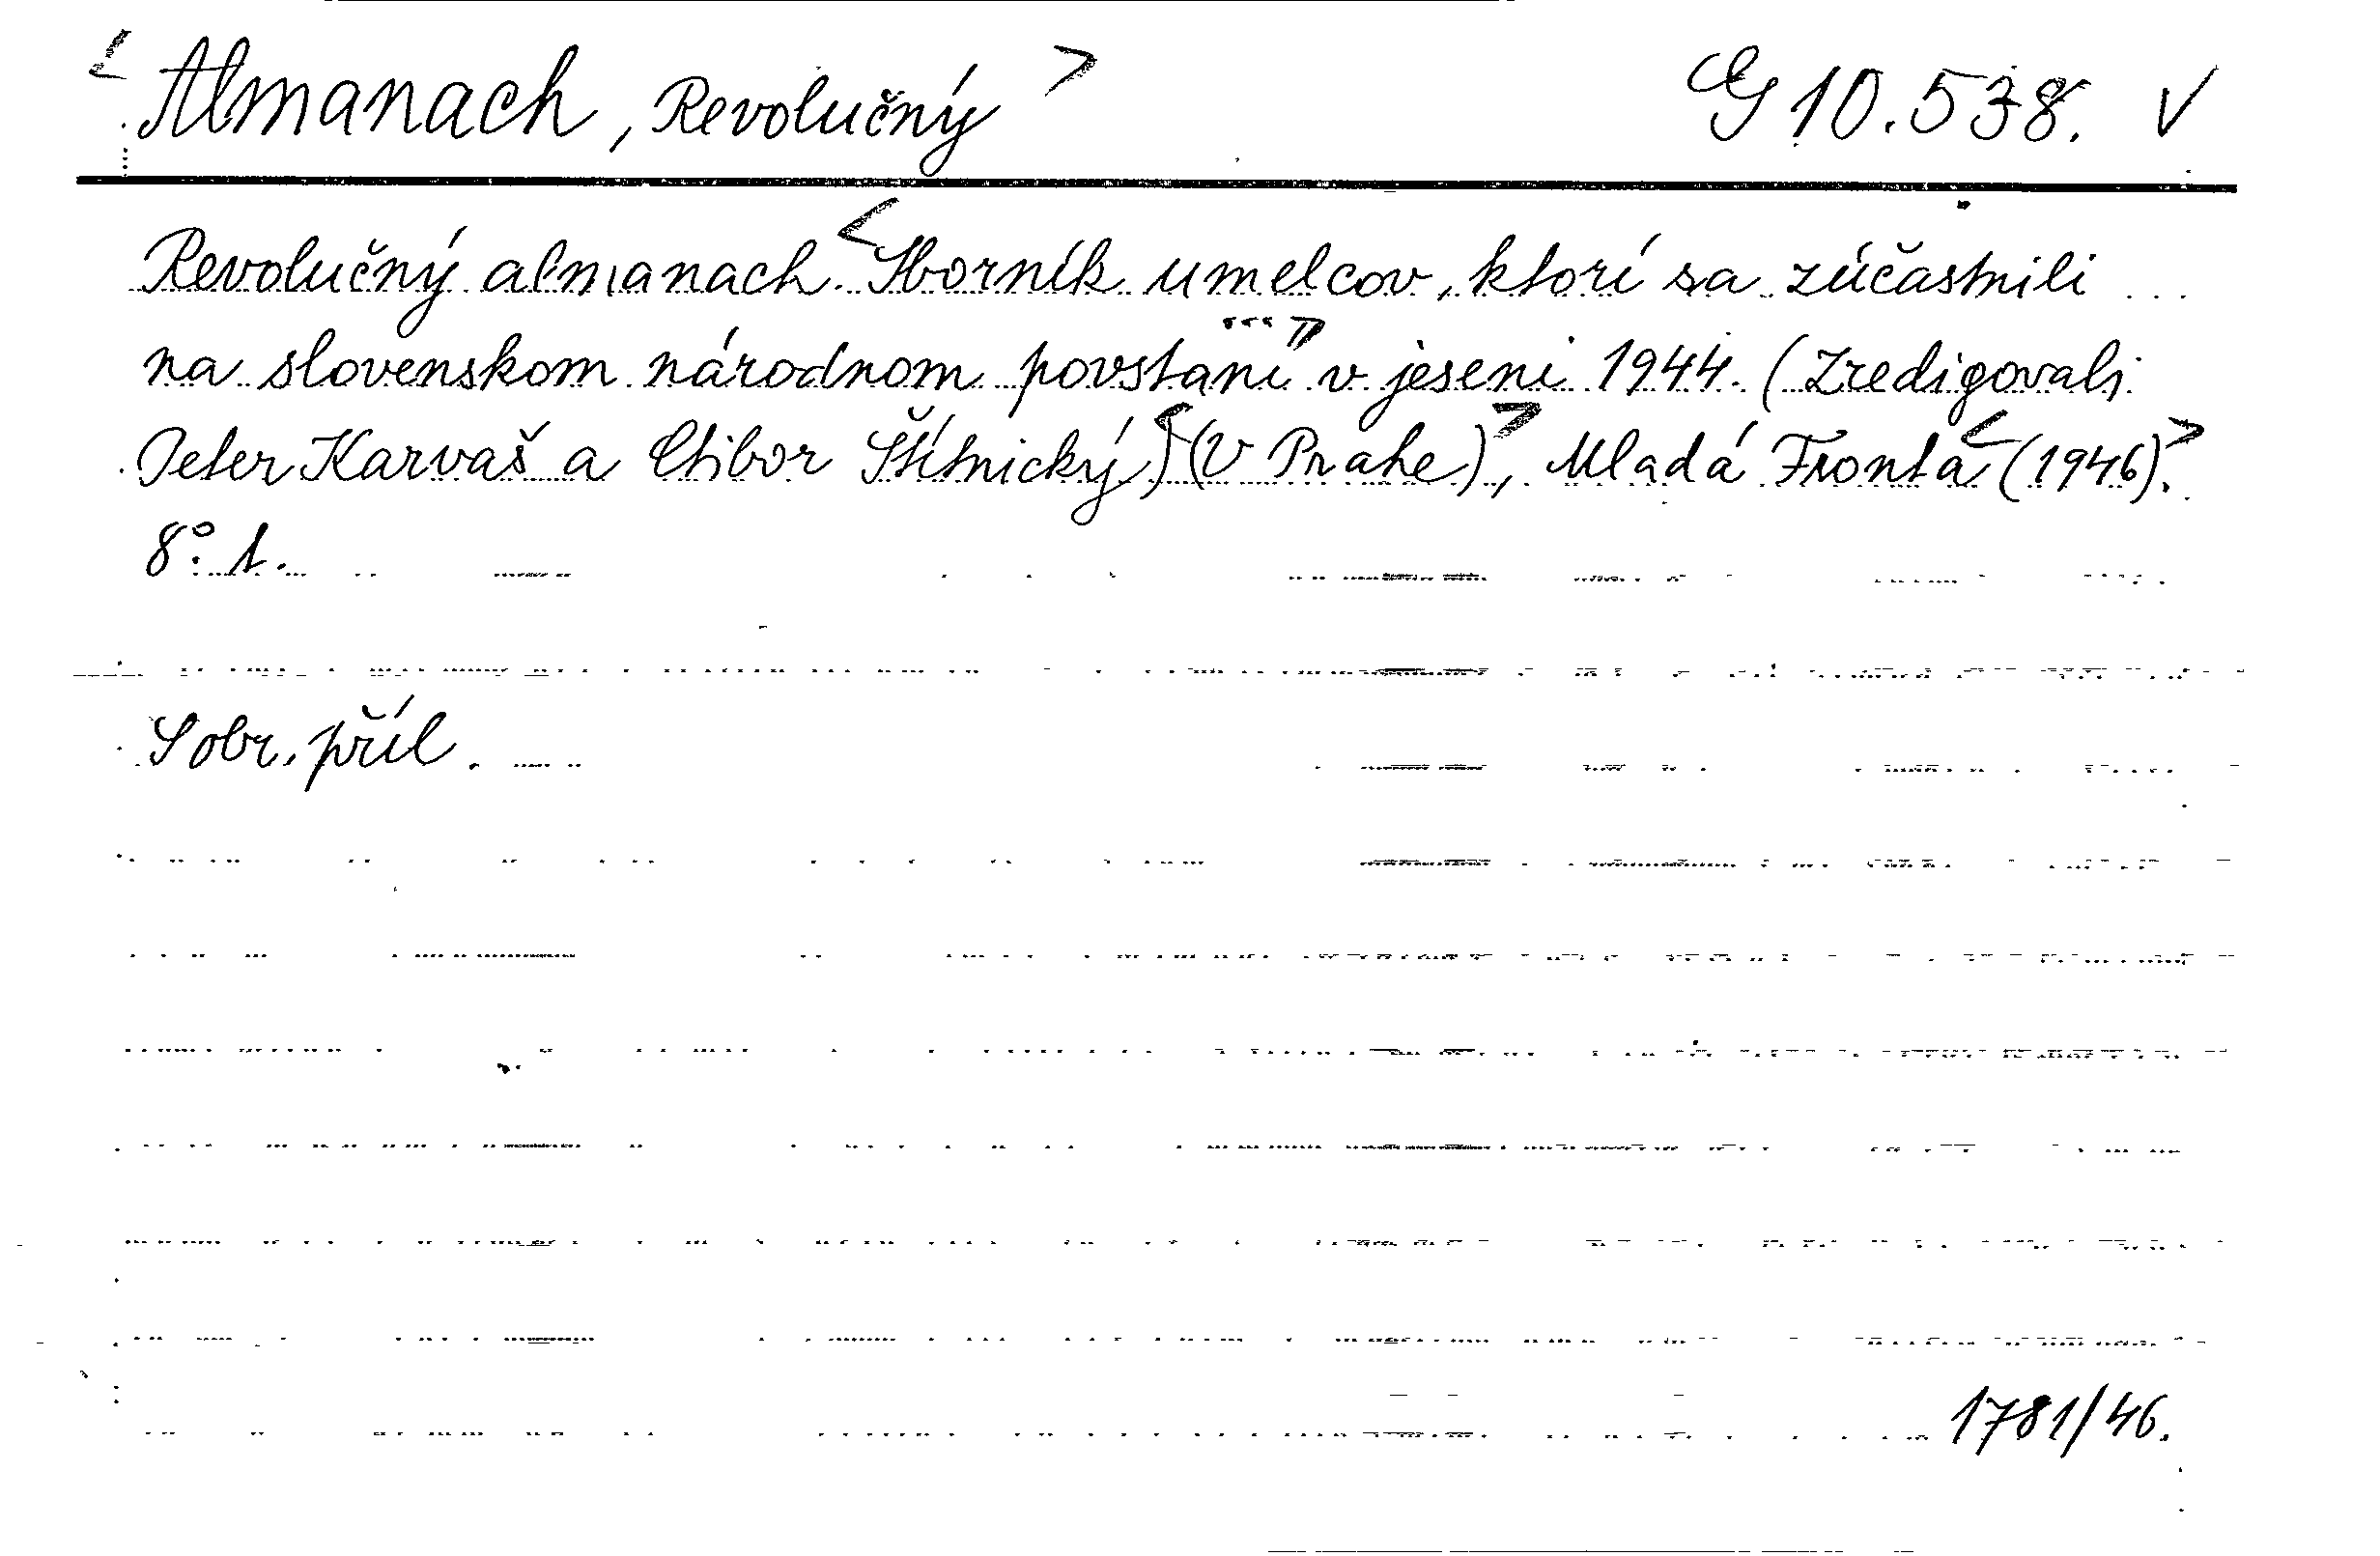 < Almanach, Revolučný > G 10.538. V
Revolučný almanach. < Sborník umelcov, ktorí sa zúčastnili
na slovenskom národnom povstaní ... » v jeseni 1944. (Zredigovali
Peter Karvaš a Ctibor Štítnický) < (V Prahe) >, Mladá Fronta < (1946). >
8°. 1.
S obr. příl.
1781/46.